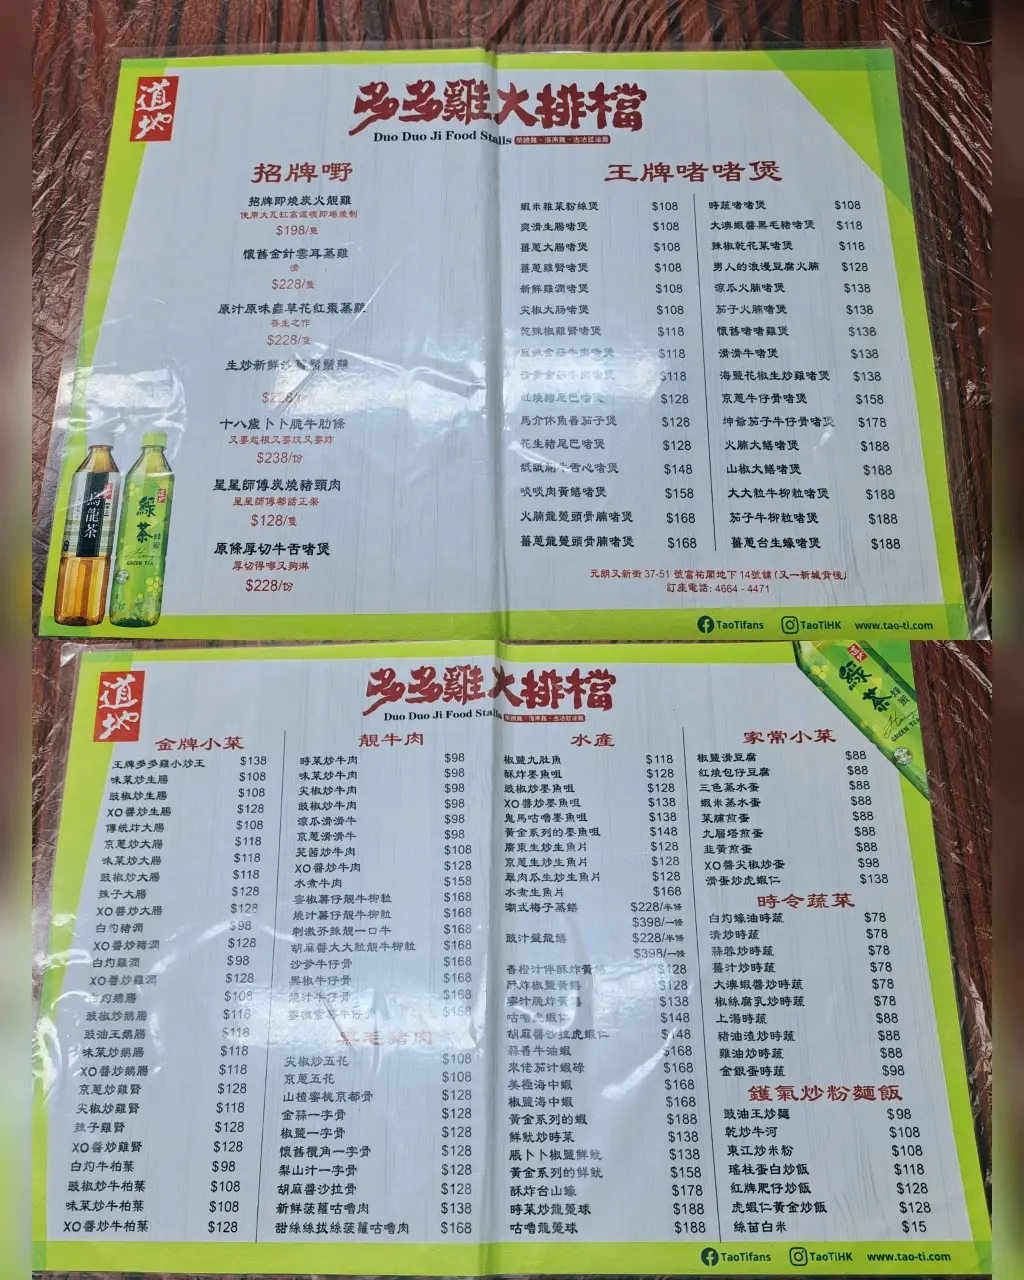 道地
多多雞大排檔
Duo Duo Ji Food Stalls
招牌嘢
招牌即燒炭火靚雞
使用大瓦缸高溫破即場燒制
$198/隻
懷舊金針雲耳蒸雞
滑
$228/隻
原汁原味蟲草花紅棗蒸雞
養生之作
$228/隻
生炒新鮮
$228/隻
十八歲卜卜脆牛肋條
又要起根又要炆又要炸
$238/份
星星師傅炭燒豬頸肉
星星師傅都話正架
$128/隻
原條厚切牛舌啫煲
厚切得嚟又夠淋
$228/份
王牌啫啫煲
蝦米雜菜粉絲煲 $108
爽滑生腸啫煲 $108
薑蔥大腸啫煲 $108
薑蔥雞腎啫煲 $108
新鮮雞潤啫煲 $108
尖椒大肠啫煲 $108
乾辣椒雞腎啫煲 $118
$118
沙爹金菇牛肉啫煲 $118
紅燒豬尾巴啫煲 $128
馬介休魚香茄子煲 $128
花生豬尾巴啫煲 $128
牛舌心啫煲 $148
啖啖肉黃鱔啫煲 $158
火腩龍躉頭骨腩啫煲 $168
薑蔥龍躉頭骨腩啫煲 $168
時蔬啫啫煲 $108
大澳蝦醬黑毛豬啫煲 $118
辣椒乾花菜啫煲 $118
男人的浪漫豆腐火腩 $128
涼瓜火腩啫煲 $138
茄子火腩啫煲 $138
懷舊啫啫雞煲 $138
滑滑牛啫煲 $138
海鹽花椒生炒雞啫煲 $138
京蔥牛仔骨啫煲 $158
坤爺茄子牛仔骨啫煲 $178
火腩大鱔啫煲 $188
山椒大鱔啫煲 $188
大大粒牛柳粒啫煲 $188
茄子牛柳粒啫煲 $188
薑蔥台生蠔啫煲 $188
元朗又新街 37-51 號富祐閣地下 14號舖 (又一新城背後)
訂座電話: 4664 - 4471
烏龍茶
綠茶
蜂蜜
GREEN TEA
TaoTifans TaoTiHK www.tao-ti.com
道地
多多雞大排檔
Duo Duo Ji Food Stalls
綠茶
蜂蜜
GREEN TEA
金牌小菜
王牌多多雞小炒王 $138
味菜炒生腸 $108
豉椒炒生腸 $108
XO醬炒生腸 $128
傳統炸大腸 $108
京蔥炒大腸 $118
味菜炒大腸 $118
豉椒炒大腸 $118
辣子大腸 $128
XO醬炒大腸 $128
白灼豬潤 $98
XO醬炒豬潤 $128
白灼雞潤 $98
XO醬炒雞潤 $128
白灼鵝腸 $108
豉椒炒鵝腸 $118
豉油王鵝腸 $118
味菜炒鵝腸 $118
XO醬炒鵝腸 $118
京蔥炒雞腎 $128
尖椒炒雞腎 $118
辣子雞腎 $128
XO醬炒雞腎 $128
白灼牛柏葉 $98
豉椒炒牛柏葉 $108
味菜炒牛柏葉 $108
XO醬炒牛柏葉 $128
靚牛肉
時菜炒牛肉 $98
味菜炒牛肉 $98
尖椒炒牛肉 $98
豉椒炒牛肉 $98
涼瓜滑滑牛 $98
京蔥滑滑牛 $98
芫茜炒牛肉 $108
XO醬炒牛肉 $128
水煮牛肉 $158
蜜椒薯仔靚牛柳粒 $168
燒汁薯仔靚牛柳粒 $168
刺激芥辣靚一口牛 $168
胡麻醬大大粒靚牛柳粒 $168
沙爹牛仔骨 $168
黑椒牛仔骨 $168
燒汁牛仔骨 $168
蜜椒薯仔牛仔骨 $168
黑毛豬肉
尖椒炒五花 $108
京蔥五花 $108
山楂蜜桃京都骨 $128
金蒜一字骨 $128
椒鹽一字骨 $128
懷舊欖角一字骨 $128
梨山汁一字骨 $128
胡麻醬沙拉骨 $128
新鮮菠蘿咕嚕肉 $138
甜絲絲拔絲菠蘿咕嚕肉 $168
水產
椒鹽九肚魚 $118
酥炸墨魚咀 $128
豉椒炒墨魚咀 $128
XO醬炒墨魚咀 $138
鬼馬咕嚕墨魚咀 $138
黃金系列的墨魚咀 $148
廣東生炒生魚片 $128
京蔥生炒生魚片 $128
翠肉瓜生炒生魚片 $128
水煮生魚片 $168
潮式梅子蒸鱔 $228/半條
$398/一條
豉汁盤龍鱔 $228/半條
$398/一條
香橙汁伴酥炸黃鱔 $128
酥炸椒鹽黃鱔 $128
蜜汁脆炸黃鱔 $138
咕嚕虎蝦仁 $148
胡麻醬沙拉虎蝦仁 $148
蒜香牛油蝦 $168
來佬茄汁蝦碌 $168
美極海中蝦 $168
椒鹽海中蝦 $168
黃金系列的蝦 $188
鮮魷炒時菜 $138
脹卜卜椒鹽鮮魷 $138
黃金系列的鮮魷 $158
酥炸台山蠔 $178
時菜炒龍躉球 $188
咕嚕龍躉球 $188
家常小菜
椒鹽滑豆腐 $88
紅燒包仔豆腐 $88
三色蒸水蛋 $88
蝦米蒸水蛋 $88
菜脯煎蛋 $88
九層塔煎蛋 $88
韭黃煎蛋 $88
XO醬尖椒炒蛋 $98
滑蛋炒虎蝦仁 $138
時令蔬菜
白灼蠔油時蔬 $78
清炒時蔬 $78
蒜蓉炒時蔬 $78
薑汁炒時蔬 $78
大澳蝦醬炒時蔬 $78
椒絲腐乳炒時蔬 $78
上湯時蔬 $88
豬油渣炒時蔬 $88
雞油炒時蔬 $88
金銀蛋時蔬 $98
鑊氣炒粉麵飯
豉油王炒麵 $98
乾炒牛河 $108
東江炒米粉 $108
瑤柱蛋白炒飯 $118
紅牌肥仔炒飯 $128
虎蝦仁黃金炒飯 $128
絲苗白米 $15
TaoTifans TaoTiHK www.tao-ti.com